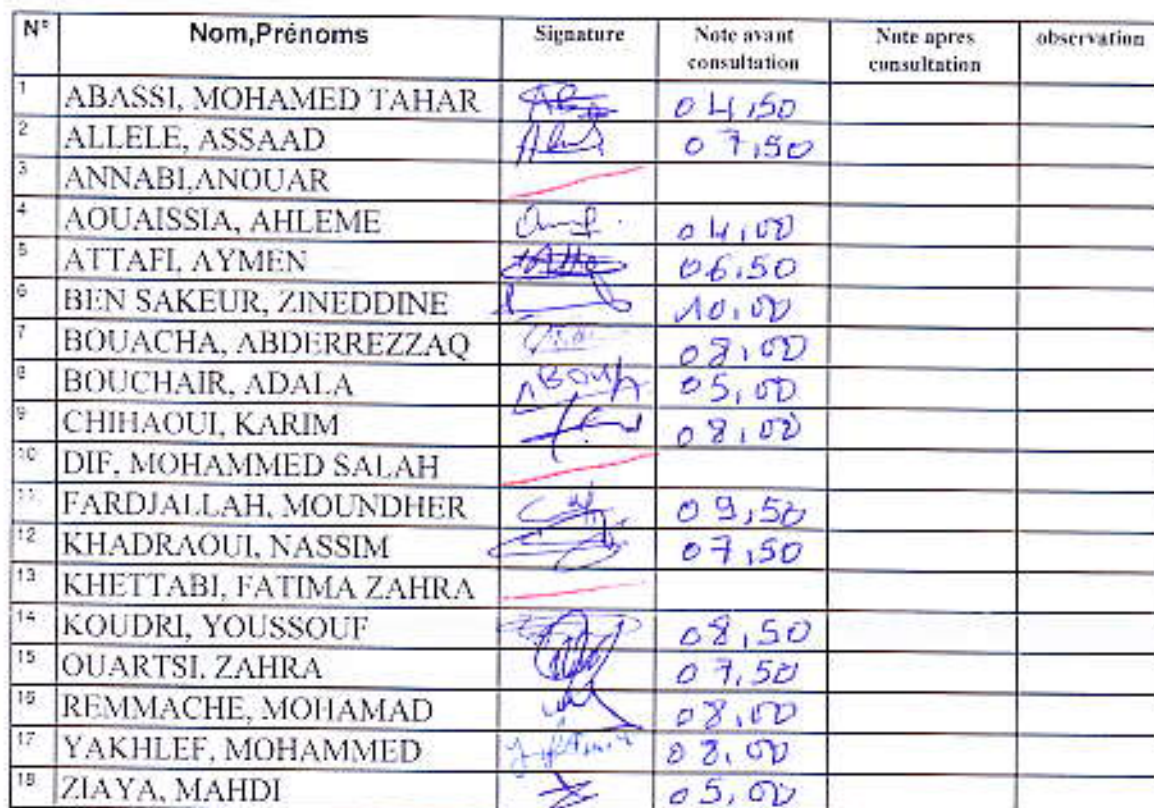 N° Nom,Prénoms Signature Note avant consultation Note apres consultation observation
1 ABASSI, MOHAMED TAHAR 04,50
2 ALLELE, ASSAAD 07,50
3 ANNABI,ANOUAR
4 AOUAISSIA, AHLEME 04,00
5 ATTAFI, AYMEN 06,50
6 BEN SAKEUR, ZINEDDINE 10,00
7 BOUACHA, ABDERREZZAQ 08,00
8 BOUCHAIR, ADALA 05,00
9 CHIHAOUI, KARIM 08,00
10 DIF, MOHAMMED SALAH
11 FARDJALLAH, MOUNDHER 09,50
12 KHADRAOUI, NASSIM 07,50
13 KHETTABI, FATIMA ZAHRA
14 KOUDRI, YOUSSOUF 08,50
15 OUARTSI, ZAHRA 07,50
16 REMMACHE, MOHAMAD 08,00
17 YAKHLEF, MOHAMMED 08,00
18 ZIAYA, MAHDI 05,00